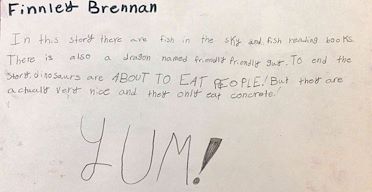 Finnley Brennan
In this story there are fish in the sky and fish reading books.
There is also a dragon named friendly friendly guy. To end the
story, dinosaurs are ABOUT TO EAT PEOPLE! But they are
actually very nice and they only eat concrete!
YUM!